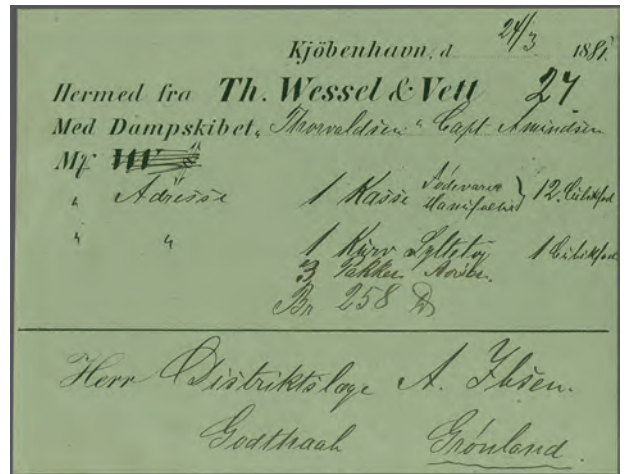 Kjöbenhavn, d 24/3 1885.
Hermed fra Th. Wessel & Vett 27
Med Dampskibet „Thorvaldsen“ Capt Amundsen
Mf
„ Adresse 1 Kasse Fødevarer Manufactur } 12. Cubikfod
„ „ 1 Kurv Syltetøj 1 Cubikfod
3 Pakker
Br 258 ℔
Herr Distriktslæge A. Ibsen.
Godthaab Grönland.